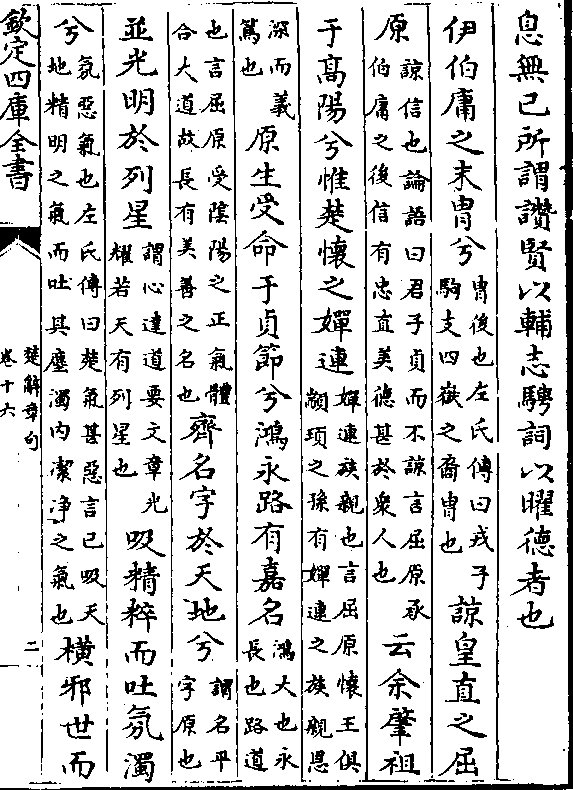 息無已所謂讚賢以輔志騁詞以曜德者也
伊伯庸之末冑兮冑後也左氏傳曰戎子駒支四嶽之裔冑也諒皇直之屈
原諒信也論語曰君子貞而不諒言屈原承伯庸之後信有忠直美德甚於衆人也云余肇祖
于髙陽兮惟楚懷之嬋連嬋連族親也言屈原懷王俱顓頊之孫有嬋連之族親恩
深而義篤也原生受命于貞節兮鴻永路有嘉名鴻大也永長也路道
也言屈原受隂陽之正氣體合大道故長有美善之名也齊名字於天地兮謂名平字原也
並光明於列星謂心達道要文章光耀若天有列星也吸精粹而吐氛濁
兮氛惡氣也左氏傳曰楚氣甚惡言已吸天地精明之氣而吐其塵濁内潔淨之氣也橫邪世而
欽定四庫全書
楚辭章句
卷十六
二